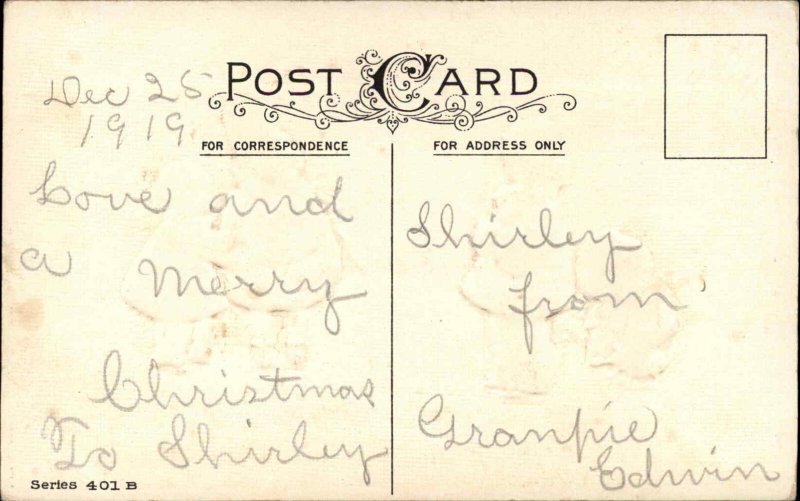 POST CARD
Dec 25
1919
FOR CORRESPONDENCE
FOR ADDRESS ONLY
Love and
a Merry
Christmas
To Shirley
Shirley
from
Granpie
Edwin
Series 401 B